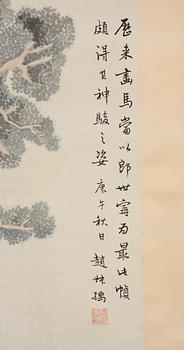 歷來畫馬當以郎世寧為最此幀
頗得其神駿之姿庚午秋日趙林孺